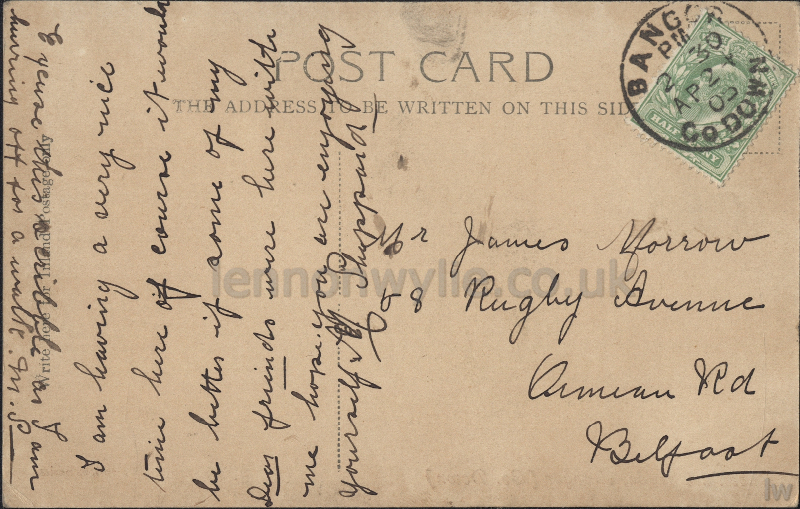 POST CARD
THE ADDRESS TO BE WRITTEN ON THIS SID
BANGOR
CO DOWN
2 30 PM
AP 24
05
HALFPENNY
Write here for Inland Postage only
I am having a very nice
time here of course it would
be better if some of my
Dear friends were here with
me hope you are enjoying
yourself M Sheppard
Excuse this scribble as I am
hurring off for a walk. M. S
Mr James Morrow
58 Rugby Avenue
Ormeau Rd
Belfast
lennonwylie.co.uk
lw